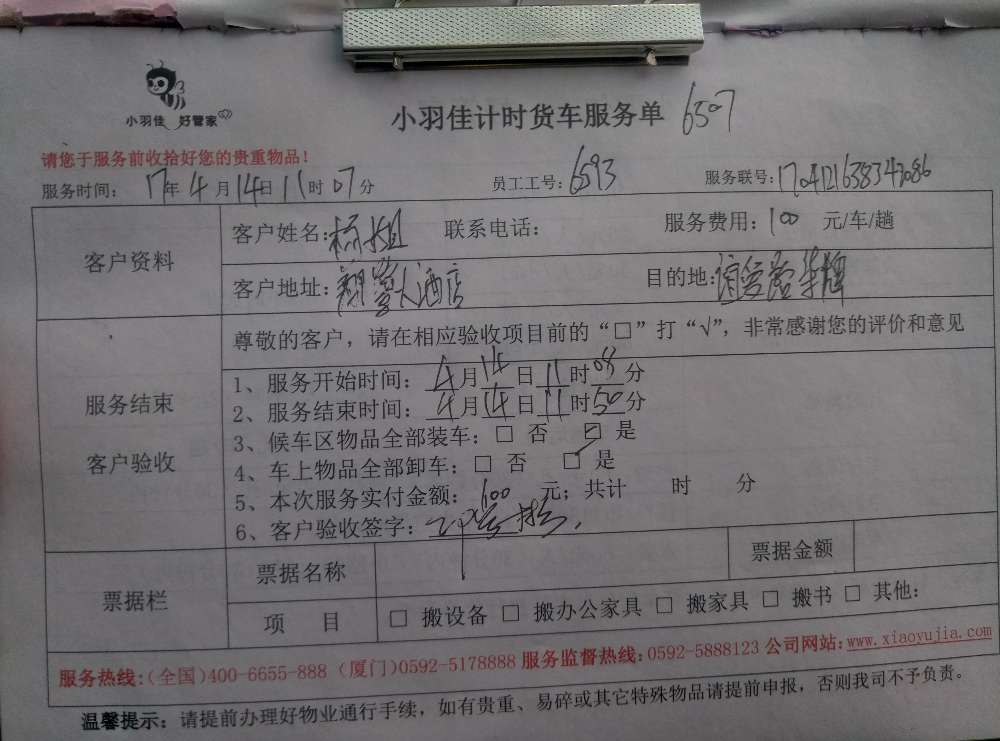 小羽佳 好管家
小羽佳计时货车服务单 6507
请您于服务前收拾好您的贵重物品!
服务时间: 17年4月14日11时07分 员工工号:6593 服务联号:
客户资料
客户姓名: 联系电话: 服务费用:100 元/车/趟
客户地址: 大酒店 目的地:
尊敬的客户，请在相应验收项目前的“□”打“√”，非常感谢您的评价和意见
服务结束
客户验收
1、服务开始时间:4月14日11时08分
2、服务结束时间:4月14日11时50分
3、候车区物品全部装车:□ 否 ☑ 是
4、车上物品全部卸车:□ 否 ☑ 是
5、本次服务实付金额: 元; 共计 时 分
6、客户验收签字:
票据栏
票据名称 票据金额
项 目 □ 搬设备 □ 搬办公家具 □ 搬家具 □ 搬书 □ 其他:
服务热线:(全国)400-6655-888 (厦门)0592-5178888 服务监督热线:0592-5888123 公司网站:www.xiaoyujia.com
温馨提示: 请提前办理好物业通行手续，如有贵重、易碎或其它特殊物品请提前申报，否则我司不予负责。